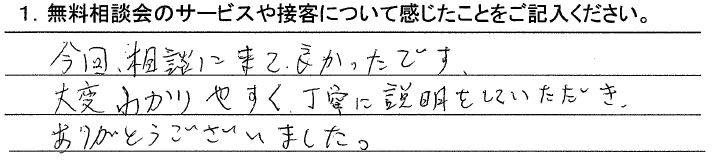 1. 無料相談会のサービスや接客について感じたことをご記入ください。
今回、相談に来て、良かったです、
大変わかりやすく、丁寧に説明をしていただき、
ありがとうございました。